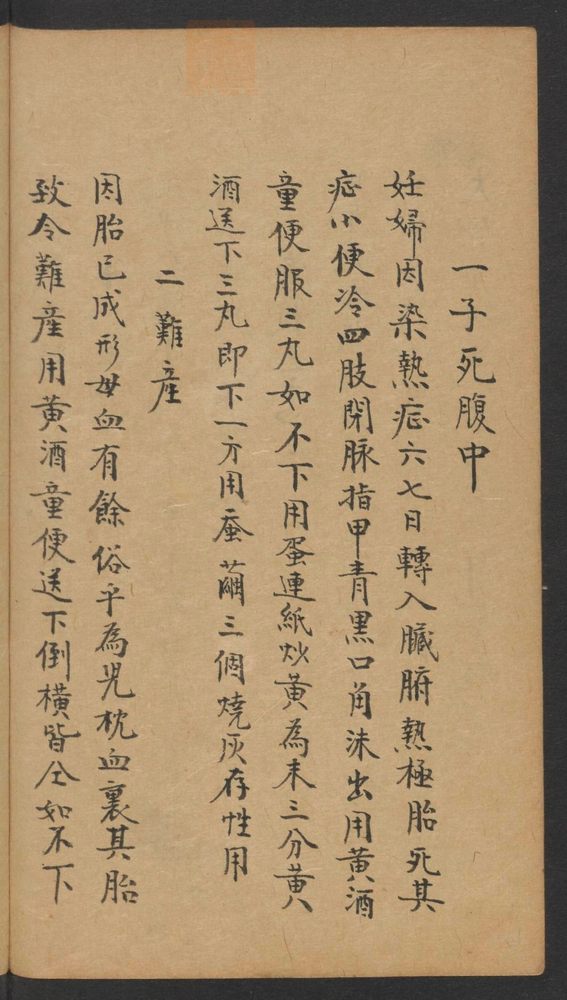 一子死腹中
妊婦因染熱症六七日轉入臟腑熱極胎死其
症小便冷四肢閉脉指甲青黑口角沫出用黄酒
童便服三丸如不下用蛋連紙炒黄為末三分黄
酒送下三丸即下一方用蚕繭三個燒灰存性用
二難産
因胎已成形母血有餘俗乎為兒枕血裹其胎
致令難産用黄酒童便送下倒横皆仝如不下